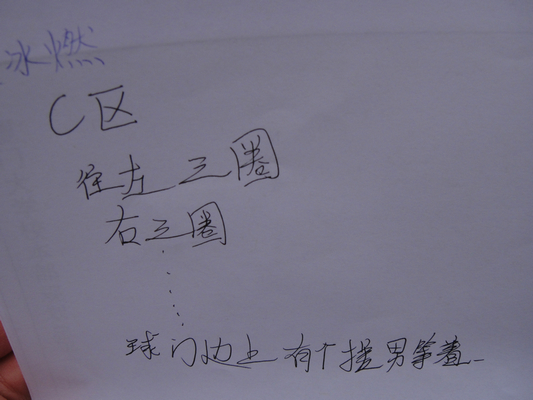 冰燃
C区
往左三圈
右三圈
......
球门边上有个猛男等着